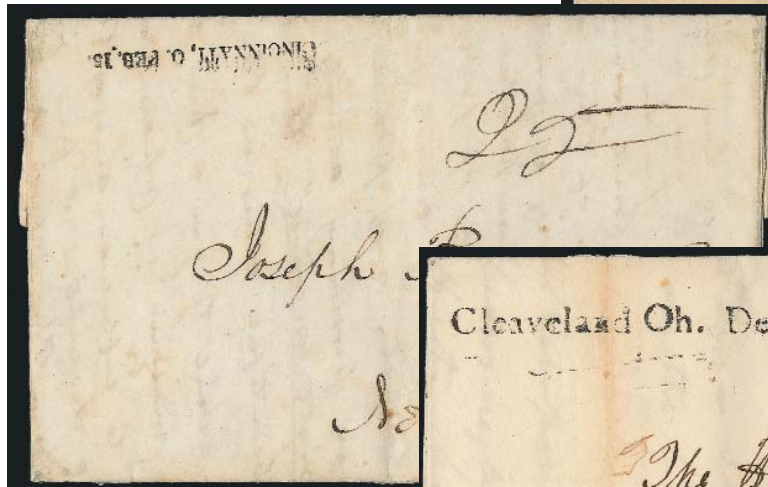 CINCINNATI, O. FEB, 15.
25
Joseph
Cleaveland Oh. De
The H